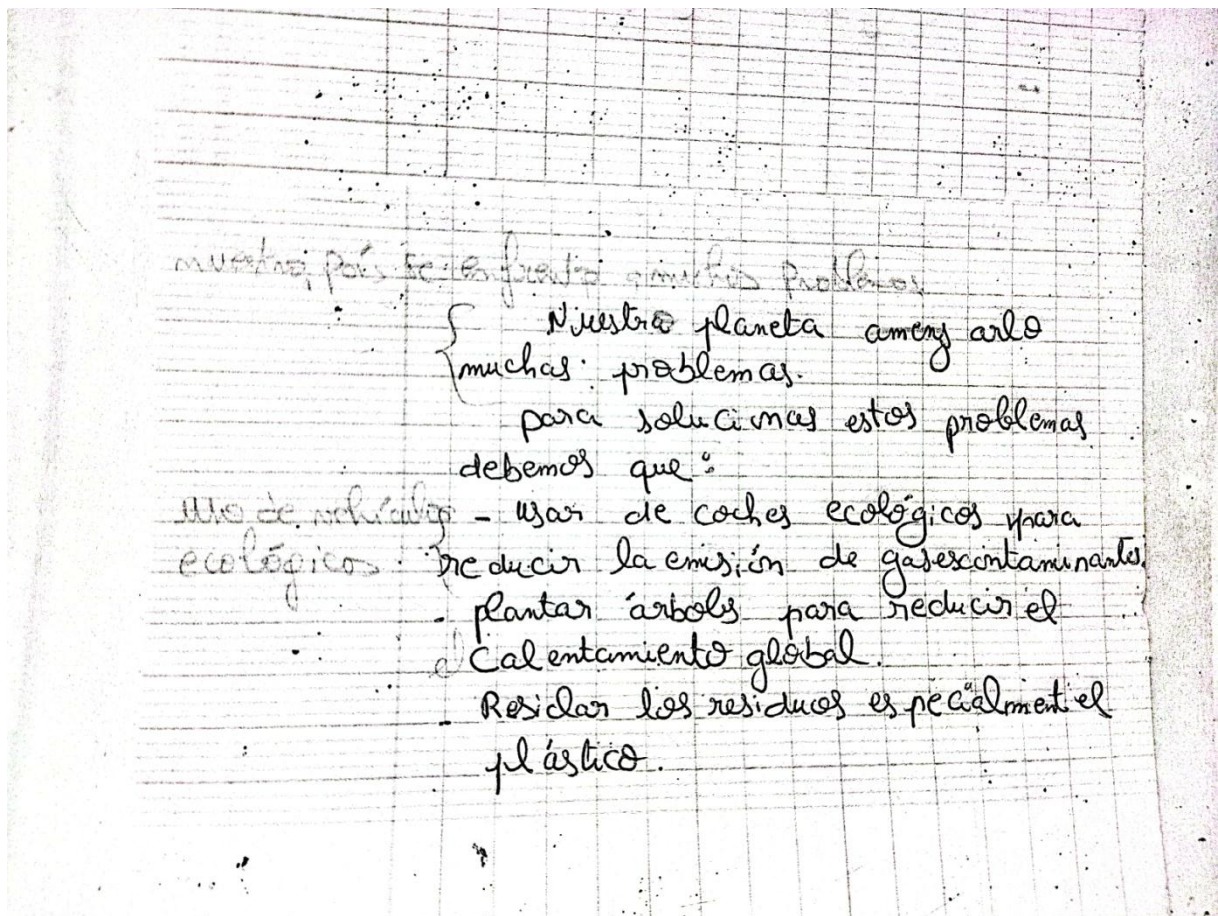 nuestro país se enfrenta a muchos Problemas
Nuestro planeta amenazarlo
muchas problemas.
para solucinas estos problemas
debemos que :
uso de vehículos - usar de coches ecológicos para
ecológicos. reducir la emisión de gasescontaminantes.
- plantar árbols para reducir el
el calentamiento global.
- Resiclar los residuos especialment el
plástico.